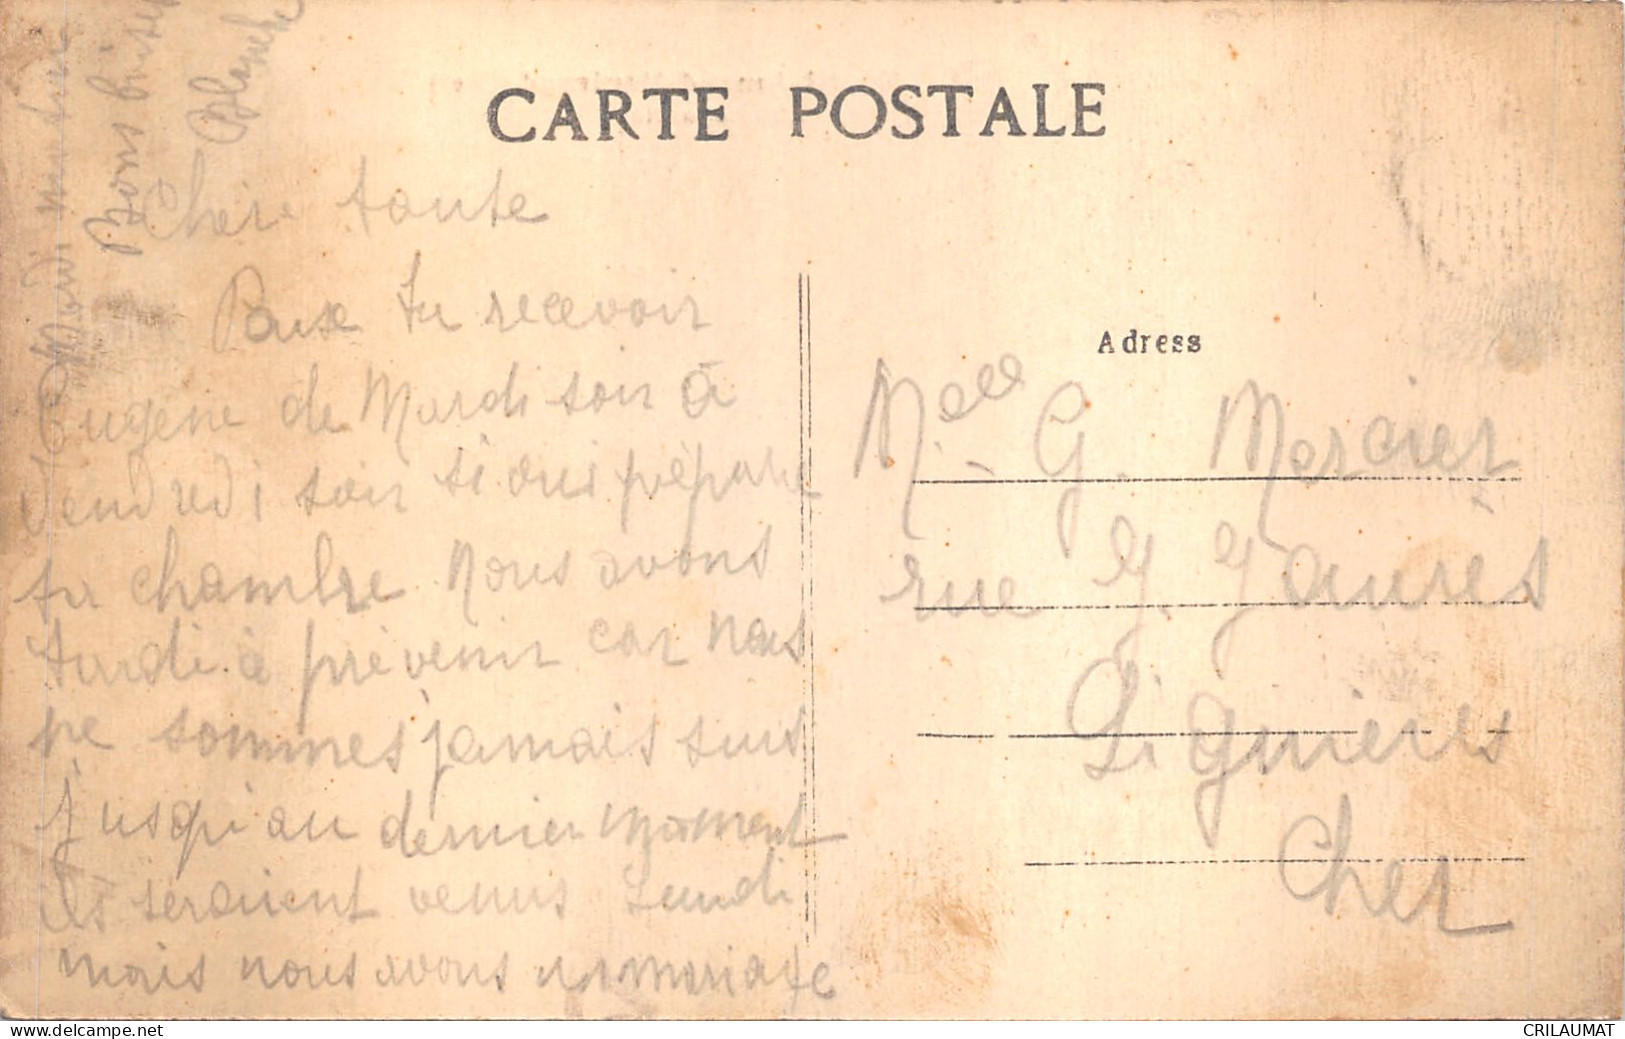 CARTE POSTALE
Chère tante
Paux tu recevoir
Eugène de Mardi soir à
vendredi soir si oui prépare
ta chambre Nous avons
tardi à prévenir car nous
ne sommes jamais surs
jusqu'au dernier moment
ils seraient venus Lundi
mais nous avons un mariage
Mardi
Bons baisers
Blanche
Adress
Melle G. Mercier
rue J. Jaurès
Lignières
Cher
CRILAUMAT